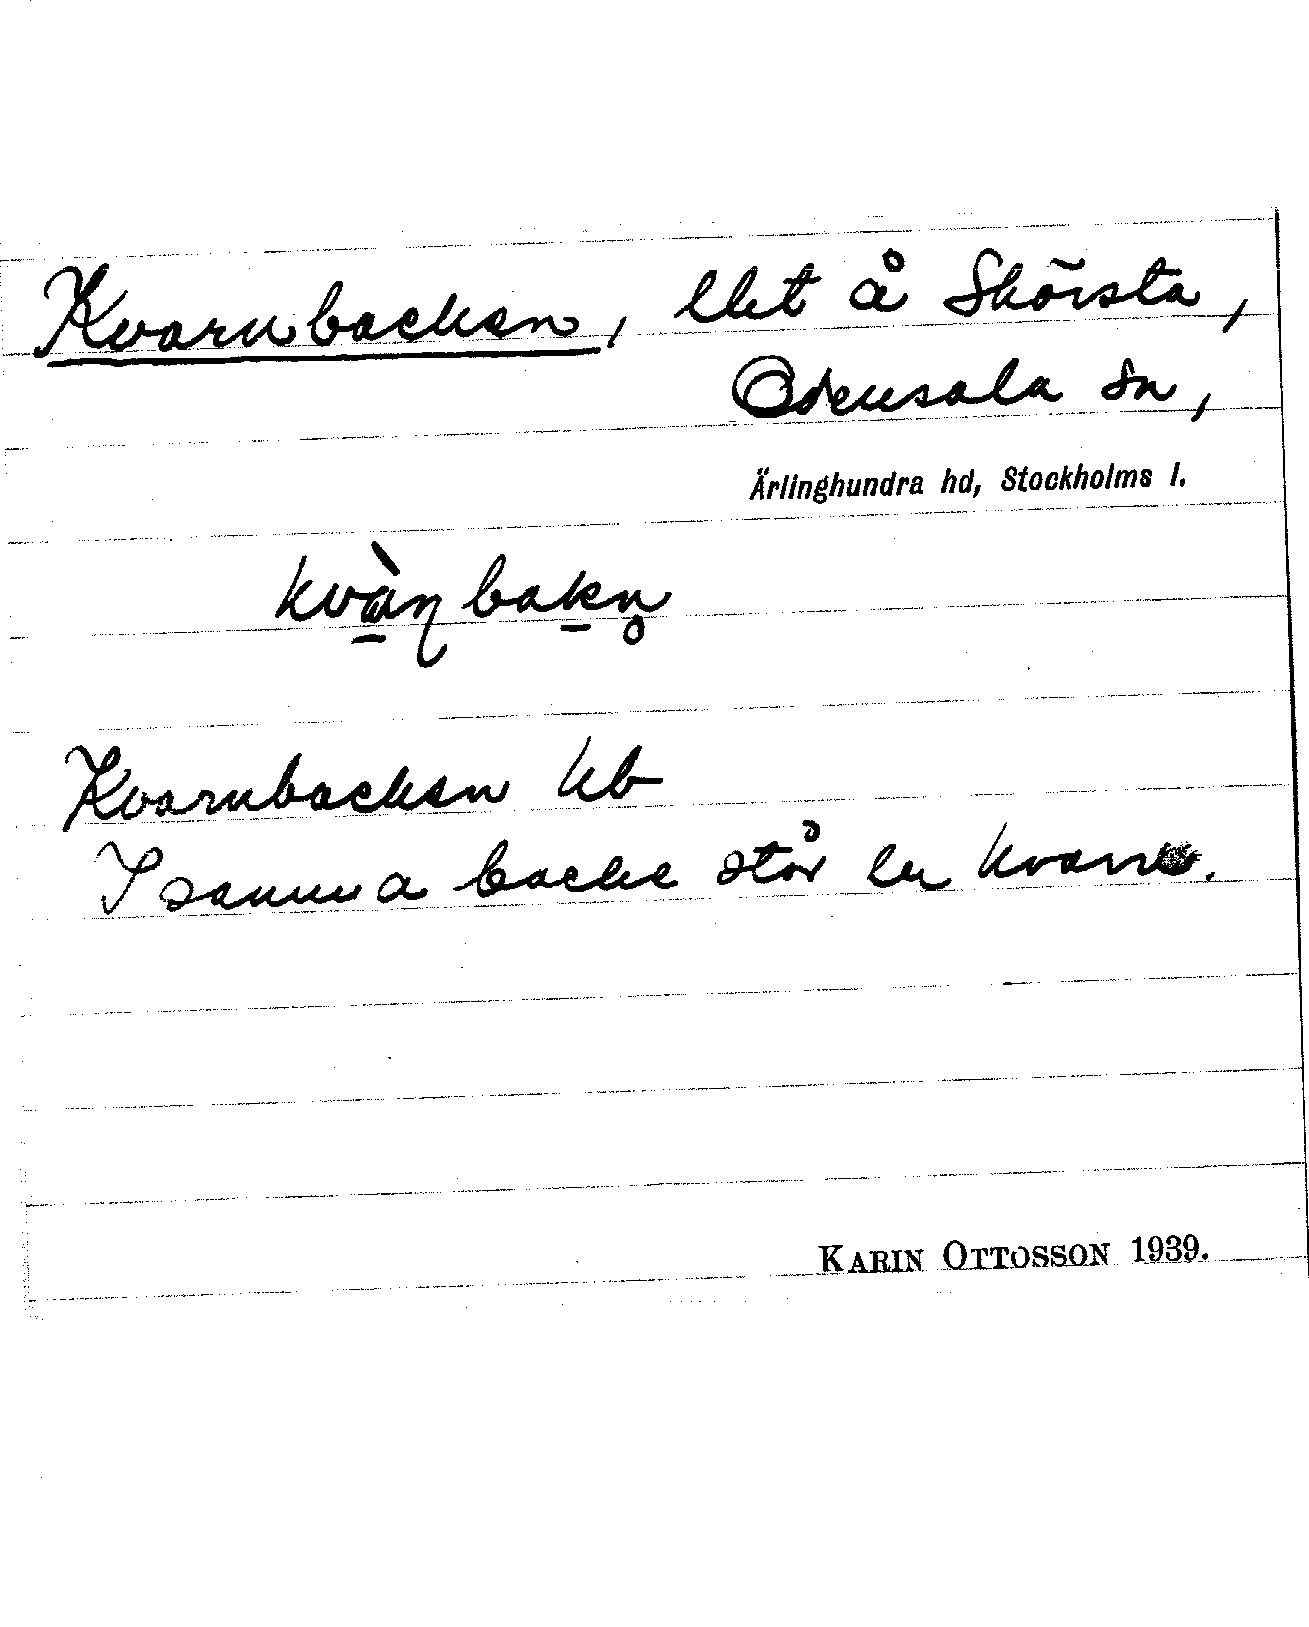 Kvarnbacken, lht å Skörsta,
Odensala sn,
Ärlinghundra hd, Stockholms l.
kvàn̨bakn̥
Kvarnbacken kb
I samma backe står en kvarn.
KARIN OTTOSSON 1939.